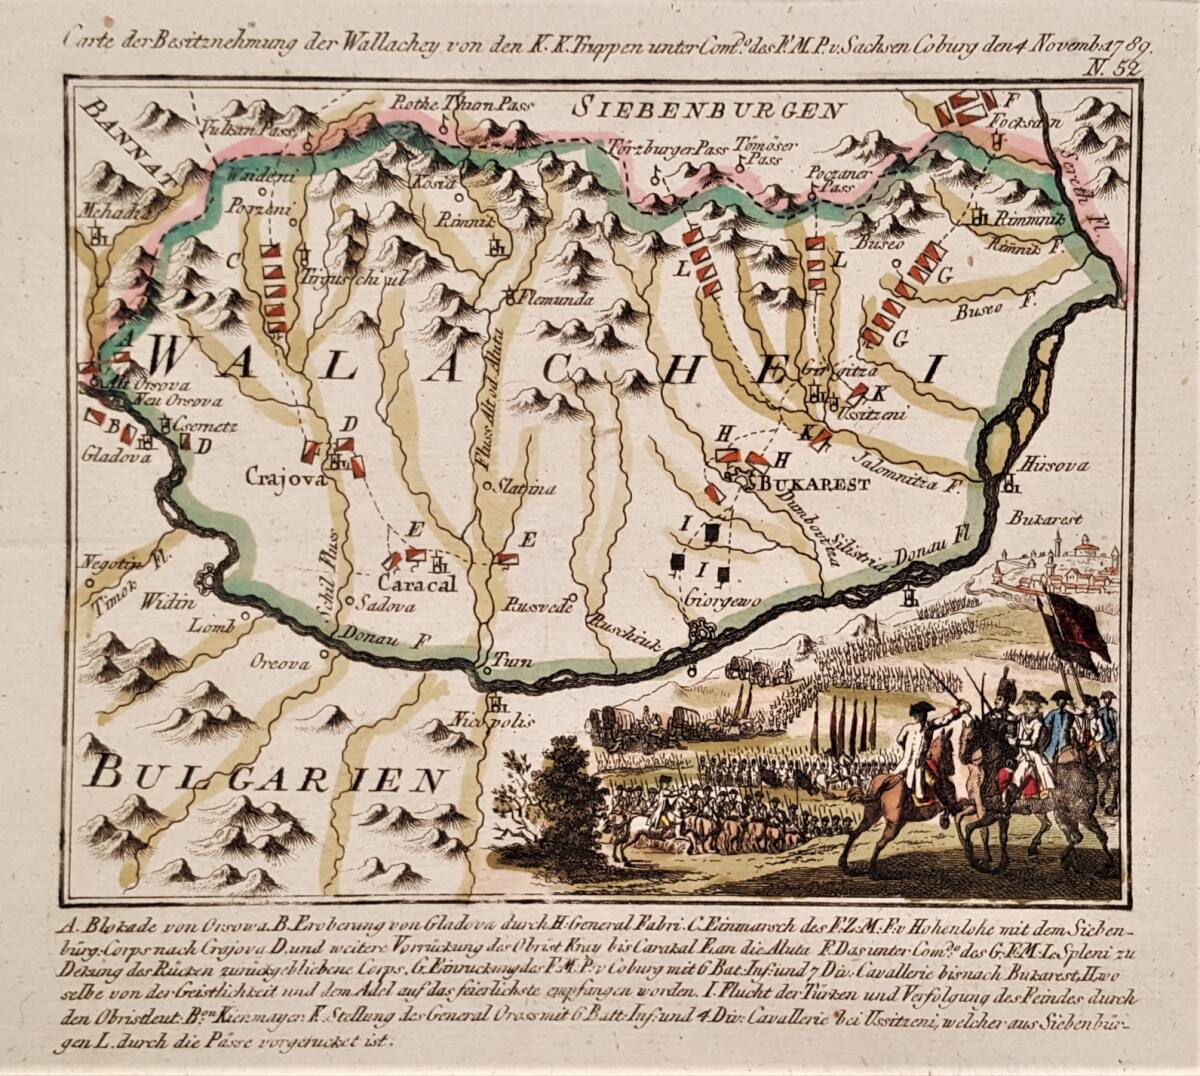 Carte der Besitznehmung der Wallachey von den K.K. Truppen unter Com.do des F.M.P.v. Sachsen Coburg den 4 Novemb. 1789.
N. 52
BANNAT
Vulkan Pass
Rothe Thurn Pass
SIEBENBURGEN
F
Focksan
Törzburger Pass
Tömöser Pass
Poczaner Pass
Sereth Fl.
Waideni
Kosia
Mehadia
Porzeni
Rimnik
Buseo
Rimmnik
Rimnik F.
C
Tirguschi yul
L
L
G
Flemunda
Buseo F.
G
A
WALACHEI
Alt Orsova
Neu Orsova
Girgitza
K
Ussitzeni
B
Csernetz
D
Gladova
D
Crajova
Fluss Alt od. Aluta
H
H
K
BUKAREST
Jalomnitza F.
Hirsova
Slatina
Dumbovitza
I
Bukarest
E
E
Silistria
Donau Fl
Negotin
Timok Fl.
Caracal
I
Widin
Schil Fluss
Sadova
Rusvede
Giorgewo
Lomb
Donau F
Ruschiuk
Oreova
Turn
Nicopolis
BULGARIEN
A. Blokade von Orsowa. B. Eroberung von Gladova durch H. General Fabri. C. Einmarsch des F.Z.M.F.v. Hohenlohe mit dem Sieben-
bürg. Corps nach Crajova D. und weitere Vorrückung des Obrist Kray bis Carakal E. an die Aluta F. Das unter Com.do des G.F.M.L. Spleni zu
Dekung des Rücken zurückgebliebene Corps. G. Einruckung des F.M.P.v. Coburg mit 6 Bat. Inf. und 7 Div. Cavallerie bis nach Bukarest, H. wo
selbe von der Geistlichkeit und dem Adel auf das feierlichste empfangen worden. I. Flucht der Türken und Verfolgung des Feindes durch
den Obristleut. B.on Kienmayer. K. Stellung des General Oross mit 6 Batt. Inf. und 4 Div. Cavallerie bei Ussitzeni, welcher aus Siebenbür-
gen L. durch die Pässe vorgerucket ist.